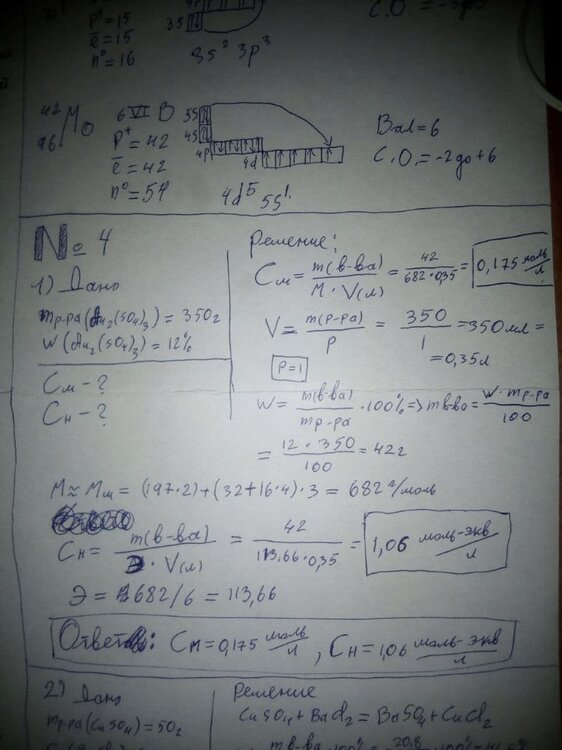 p⁺ = 15
e̅ = 15
n⁰ = 16
3s
3s² 3p³
C.O. = -3 до 5
42
96
Mo
6 VI B
p⁺ = 42
e̅ = 42
n⁰ = 54
5s
4s
4p
4d
4d⁵ 5s¹
Вал = 6
C.O. = -2 до +6
№ 4
1) Дано
mр-ра(Au₂(SO₄)₃) = 350г
W(Au₂(SO₄)₃) = 12%
Cм - ?
Cн - ?
Решение:
Cм = m(в-ва) / M · V(л) = 42 / 682 · 0,35 = 0,175 моль/л
V = m(р-ра) / ρ = 350 / 1 = 350 мл =
= 0,35 л
ρ = 1
W = m(в-ва) / mр-ра · 100% => mв-ва = W · mр-ра / 100
= 12 · 350 / 100 = 42г
M ≈ Mм = (197·2) + (32+16·4)·3 = 682 г/моль
Cн = m(в-ва) / Э · V(л) = 42 / 113,66 · 0,35 = 1,06 моль-экв/л
Э = 682/6 = 113,66
Ответ: Cм = 0,175 моль/л, Cн = 1,06 моль-экв/л
2) Дано
mр-ра(CuSO₄) = 50г
Решение
CuSO₄ + BaCl₂ = BaSO₄ + CuCl₂